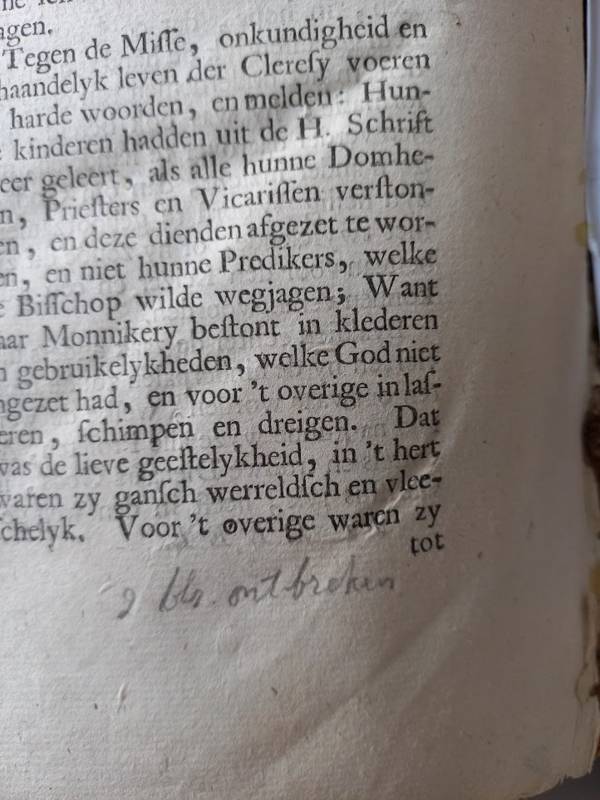 agen.
Tegen de Miſſe, onkundigheid en
haandelyk leven der Clereſy voeren
harde woorden, en melden: Hun-
kinderen hadden uit de H. Schrift
eer geleert, als alle hunne Domhe-
n, Prieſters en Vicariſſen verſton-
en, en deze dienden afgezet te wor-
en, en niet hunne Predikers, welke
e Biſſchop wilde wegjagen; Want
aar Monnikery beſtont in klederen
n gebruikelykheden, welke God niet
ngezet had, en voor 't overige in laſ-
eren, ſchimpen en dreigen. Dat
was de lieve geeſtelykheid, in 't hert
waren zy ganſch werreldſch en vlee-
ſchelyk. Voor 't overige waren zy
tot
blz. ontbreken